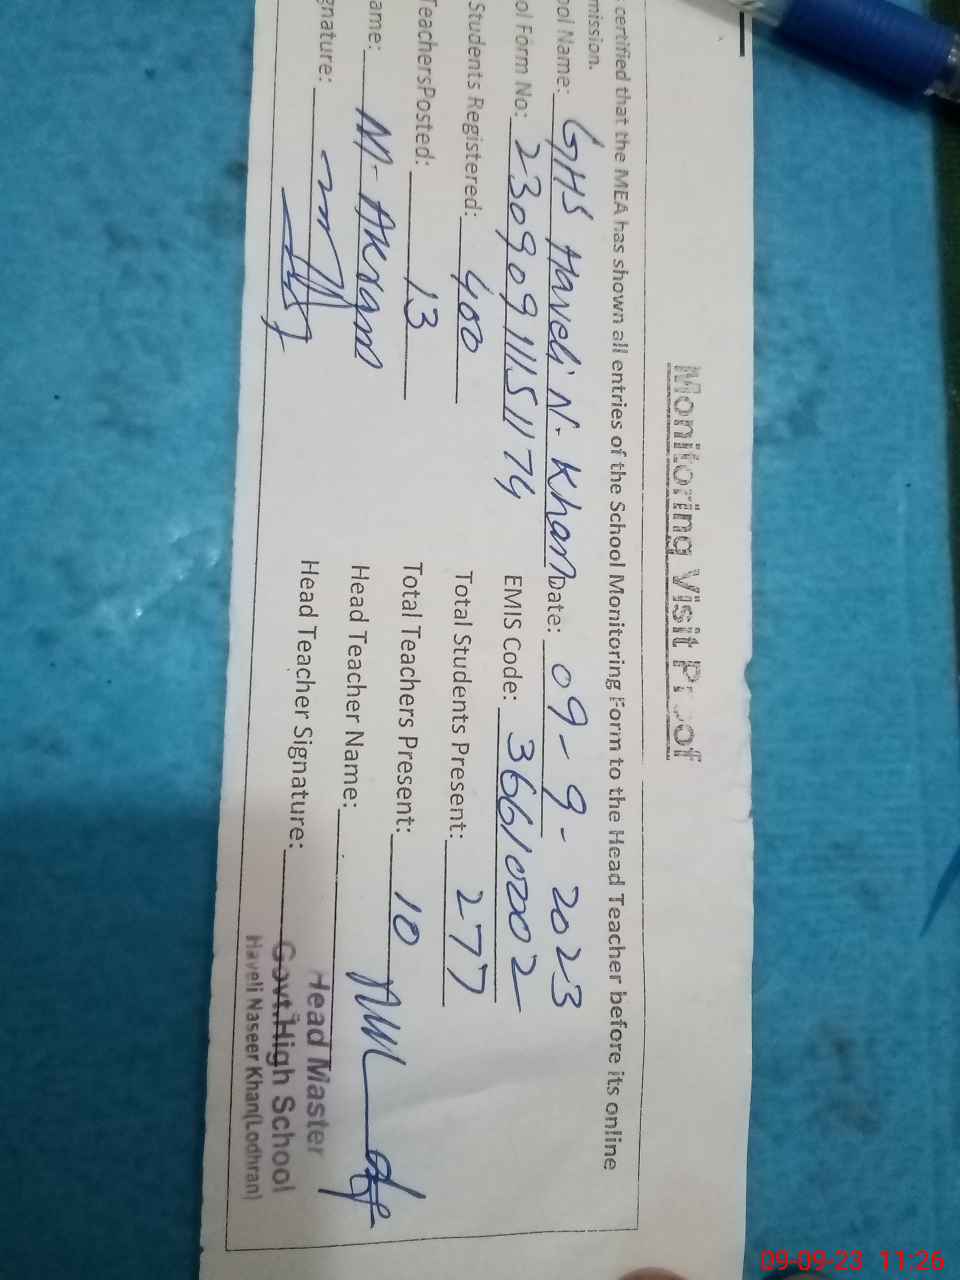 Monitoring Visit Proof
certified that the MEA has shown all entries of the School Monitoring Form to the Head Teacher before its online
mission.
ool Name: GHS Haveli N. Khan Date: 09-9-2023
ol Form No: 23090911151174 EMIS Code: 36610002
Students Registered: 400 Total Students Present: 277
TeachersPosted: 13 Total Teachers Present: 10
ame: M. Akram Head Teacher Name:
gnature: Head Teacher Signature:
Head Master
Govt.High School
Haveli Naseer Khan(Lodhran)
09-09-23 11:26